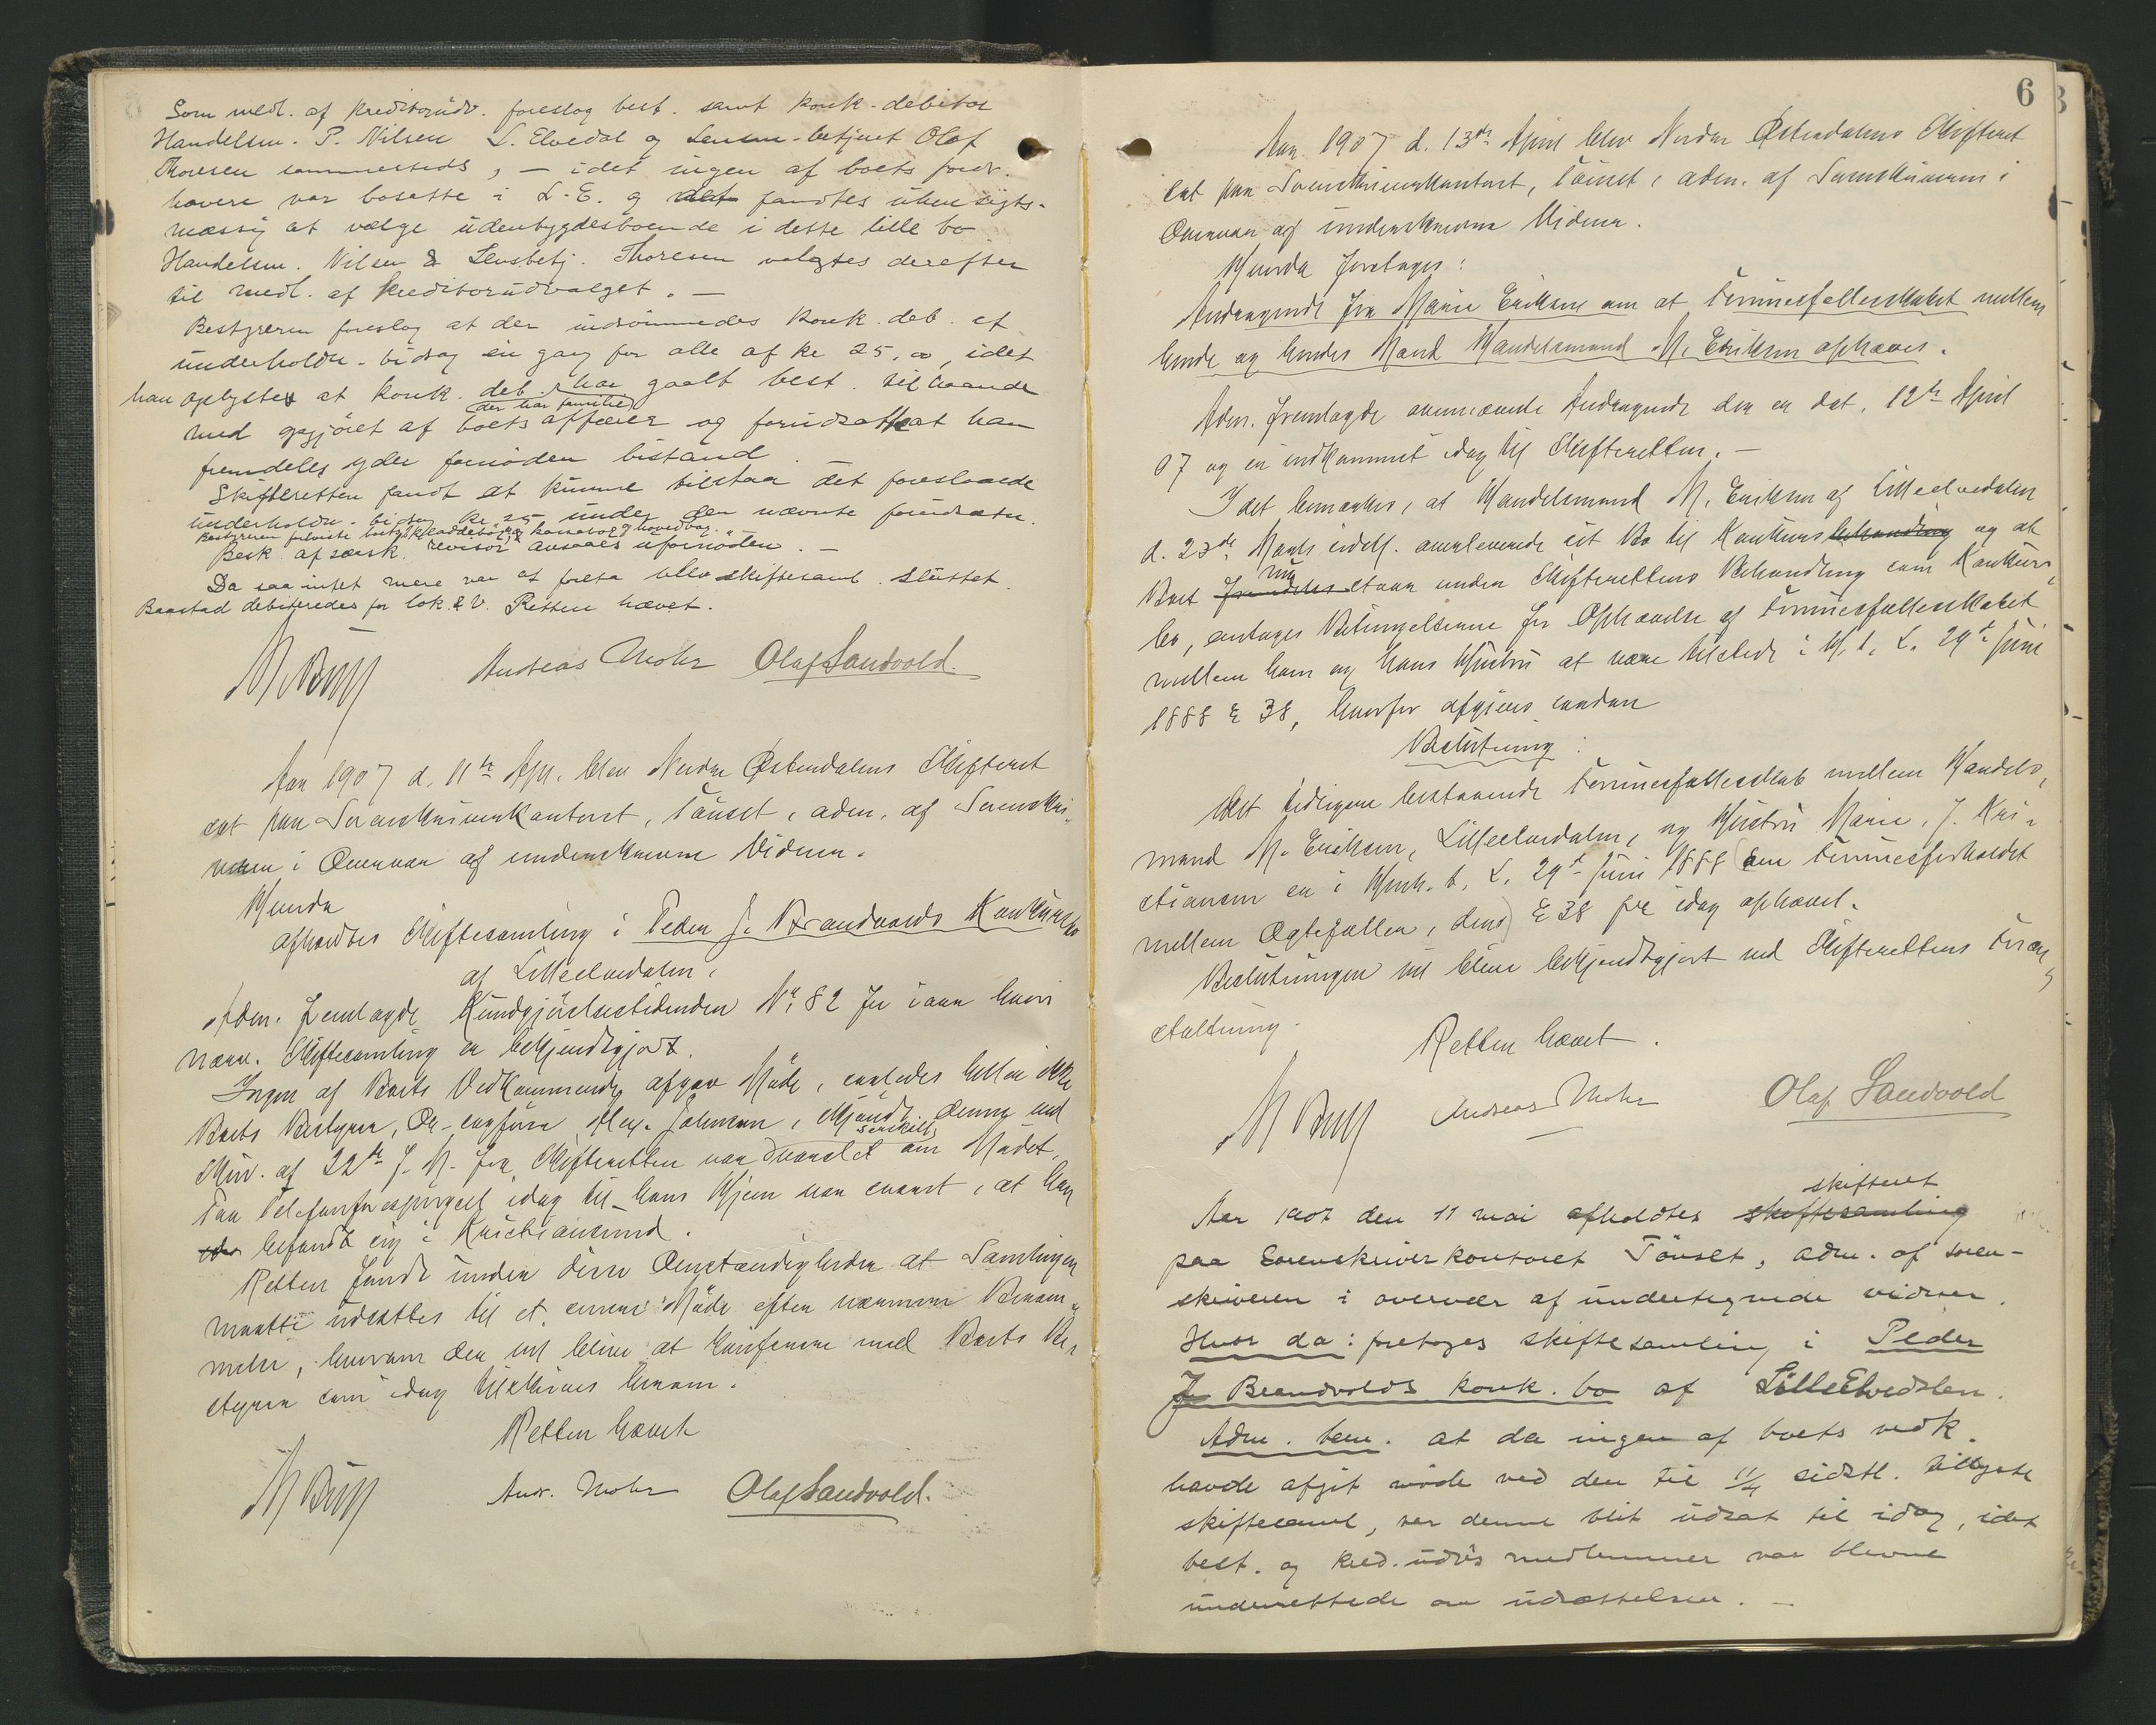 Som medl. af kreditorudv. foreslog best. samt konk-debitor
Handelsm. P. Nilsen L. Elvedal og Lensm-betjent Olaf
Thoresen sammesteds, – idet ingen af boets fordr.
havere var bosatte i L-E. og det fandtes uhensigts-
mæssig at vælge udenbygdesboende i dette lille bo
Handelsm. Nilsen & Lensbetj. Thoresen valgtes derefter
til medl. af kreditorudvalget. –
Bestyreren foreslog at der indrømmedes konk. deb. et
underholdn-bidrag en gang for alle af kr 25,00, idet
han oplyste at konk. deb. har gaat best. til haande
der har familie
med opgjøret af boets affærer og forudsat at han
fremdeles yder fornøden bistand.
Skifteretten fandt at kunne tilstaa det foreslaaede
underholdn. bidrag kr 25 under den nævnte forudsætn.
Bestyreren foreviste bostyr. kladdebog kassabog & hovedbog.
Besk. af særsk. revisor ansaaes ufornøden. –
Da saa intet mere var at foreta blev skiftesaml. sluttet.
Baastad debiteredes for lok. & V. Retten hævet.
Andreas Mohr Olaf Sandvold.
Aar 1907 d. 11te Apr. blev Nordre Østerdalens Skifteret
sat paa Sorenskriverkontoret, Tønset, adm. af Sorenskri-
veren i Overvær af underskrevne Vidner.
Hvorda
afholdtes Skiftesamling i Peder J. Brandvolds Konkursbo
af Lilleelvedalen.
Adm. fremlagde Kundgjørelsestidenden No. 82 for iaar hvori
nærv. Skiftesamling er bekjendtgjort.
Ingen af Boets Vedkommende afgav Møde, saaledes heller ikke
Boets Bestyrer, O.r.sagfører Johnsen, skjøndt denne ved
Skriv. af 22de f. M. fra Skifteretten var særskilt varslet om Mødet.
Paa Telefonforespørgsel idag til hans Hjem var svaret, at han
befandt sig i Kristiansund.
Retten fandt under disse Omstændigheder at Samlingen
maatte udsættes til et senere Møde efter nærmere Beram-
melse, hvorom der vil blive at konferere med Boets Be-
styrer som idag tilskrives herom.
Retten hævet
Andr. Mohr Olaf Sandvold.
6
Aar 1907 d. 13de April blev Nordre Østerdalens Skifteret
sat paa Sorenskriverkontoret, Tønset, adm. af Sorenskriveren i
Overvær af underskrevne Vidner.
Hvorda foretoges:
Andragende fra Marie Eriksen om at Formuesfællesskabet mellem
hende og hendes Mand Handelsmand M. Eriksen ophæves.
Adm. fremlagde ovennævnte Andragende der er dat. 12te April
07 og er indkommet idag til Skifteretten. –
Idet bemærkes, at Handelsmand M. Eriksen af Lilleelvedalen
d. 23de Marts sidstl. overleverede sit Bo til Konkursbehandling og at
Boet fremdeles nu staar under Skifterettens Behandling som Konkurs-
bo, antages Betingelserne for Ophævelse af Formuesfællesskabet
mellem ham og hans Hustru at være tilstede i H. t. L. 29de Juni
1888 § 38, hvorfor afgives saadan
Beslutning:
Det tidligere bestaaende Formuesfællesskab mellem Handels-
mand M. Eriksen, Lilleelvedalen, og Hustru Marie, f. Kri-
stiansen er i Henh. t. L. 29de Juni 1888 (om Formuesforholdet
mellem Ægtefæller, dens) § 38 fra idag ophævet.
Beslutningen vil blive bekjendtgjort ved Skifterettens Foran-
staltning.
Retten hævet.
Andreas Mohr Olaf Sandvold
skifteret
Aar 1907 den 11 mai afholdtes skiftesamling
paa Sorenskriverkontoret Tønset, adm. af soren-
skriveren i overvær af undertegnede vidner.
Hvor da: foretoges skiftesamling i Peder
J. Brandvolds konk. bo af LilleElvedalen.
Adm. bem. at da ingen af boets vedk.
havde afgit møde ved den til 11/4 sidstl. tillyste
skiftesaml, var denne blit udsat til idag, idet
best. og kred. udv's medlemmer var blevne
underrettede om udsættelsen. –